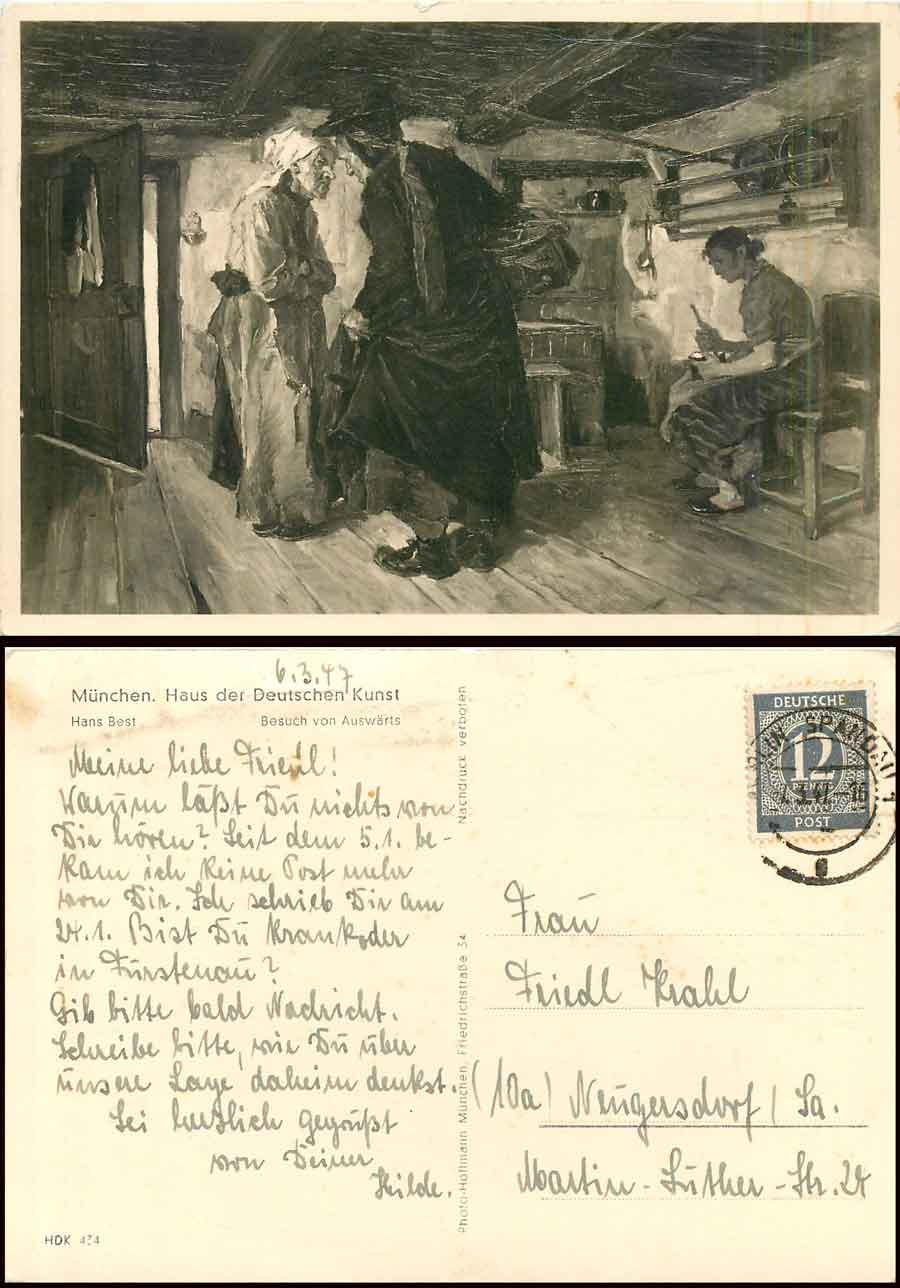 6.3.47
München. Haus der Deutschen Kunst
Hans Best Besuch von Auswärts
Meine liebe Friedl!
Warum läßt Du nichts von
Dir hören? Seit dem 5.1. be-
kam ich keine Post mehr
von Dir. Ich schrieb Dir am
24.1. Bist Du krank oder
in Fürstenau?
Gib bitte bald Nachricht.
Schreibe bitte, wie Du über
unsere Lage daheim denkst.
Sei herzlich gegrüßt
von Deiner
Hilde.
HDK 434
Nachdruck verboten
Photo-Hoffmann München, Friedrichstraße 34
DEUTSCHE
12
PFENNIG
POST
SPANDAU 1
Frau
Friedl Krahl
(10a) Neugersdorf / Sa.
Martin-Luther-Str. 24